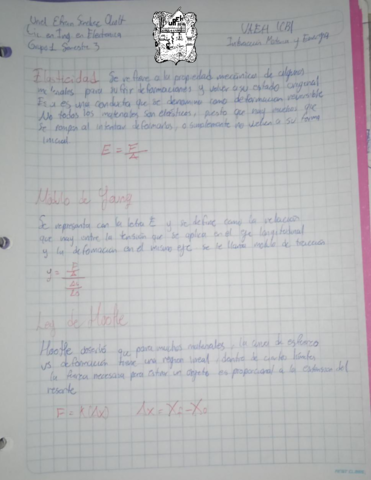 Lic. en Ing. en Electrónica
Grupo 1 Semestre 3
UAEH ICBI
Interaccion Materia y Energia
Elasticidad Se refiere a la propiedad mecánica de algunos
materiales para sufrir deformaciones y volver a su estado original
Es una conducta que se denomina como deformacion reversible
No todos los materiales son elásticos, puesto que hay muchos que
se rompen al intentar deformarlos, o simplemente no vuelven a su forma
inicial
E =
Modulo de Young
Se representa con la letra E y se define como la relacion
que hay entre la tension que se aplica en el eje longitudinal
y la deformacion en el mismo eje se le llama modulo de
y =
Ley de Hooke
Hooke descubrio que para muchos materiales, la curva de esfuerzo
vs deformacion tiene una region lineal dentro de ciertos limites
la fuerza necesaria para estirar un objeto es proporcional a la extension del
resorte
F = K(Δx) Δx = X₂ - X₀